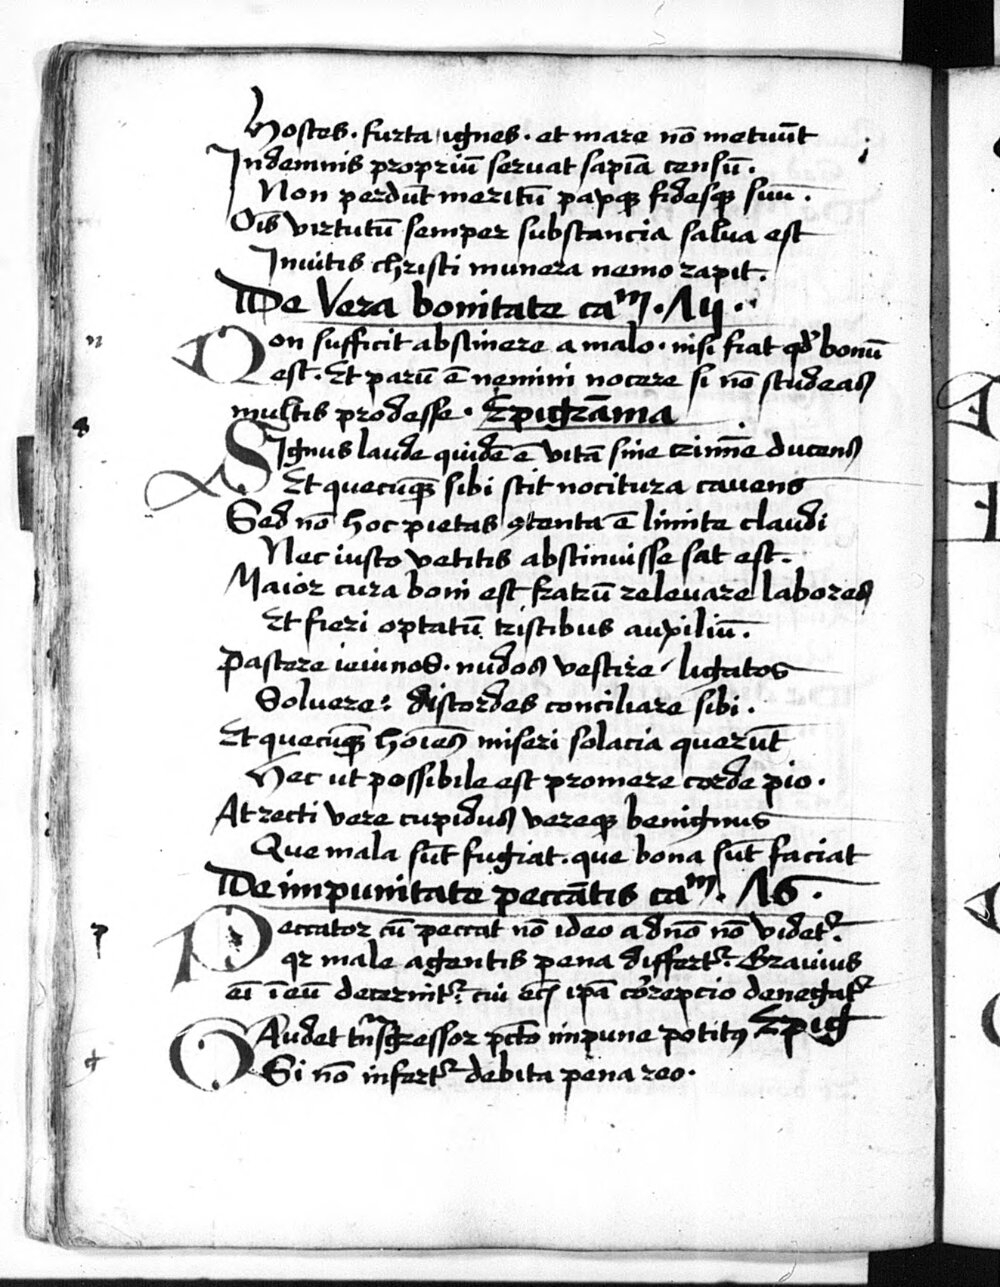 Hostes. furta ignes. et mare nō metuūt
Indemnis propriū seruat sapiā censū.
Non perdūt meritū paxqꝫ fidesqꝫ suū.
Oīs virtutū semper substancia salua est
Inuitis christi munera nemo rapit.
De Vera bonitate caᵐ. 14.
Non sufficit abstinere a malo. nisi fiat qđ bonū
est. Et parū ē nemini nocere si nō studeas
multis prodesse. Epigrāma
Dignus laude quidē ē vitā sine crimīe ducens
Et quecūqꝫ sibi scit nocitura cauens
Sed nō hoc pietas ꝯtenta ē limite claudi
Nec iusto vetitis abstinuisse sat est.
Maior cura boni est fratrū releuare labores
Et fieri optatū tristibus auxiliū.
Pascere ieiunos. nudos vestire / ligatos
Soluere: discordes conciliare sibi.
Et quecūqꝫ hoīes miseri solacia querūt
Hec ut possibile est promere corde pio.
At recti vere cupidus vereqꝫ benignus
Que mala sūt fugiat. que bona sūt faciat
De impunitate peccātis caᵐ. 15.
Peccator cū peccat nō ideo a dnō nō videtᷣ.
qꝛ male agentis pena differtᷣ. Grauius
ei ī eū decernitᷣ: cui ecī ipā correpcio denegatᷣ
Gaudet trāsgressor pctō impune potitꝰ Epig
Si nō infertᷣ debita pena reo.